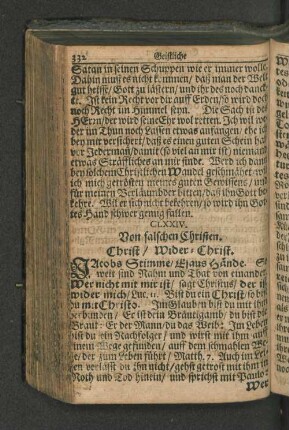 332 Geistliche
Satan in seinen Schuppen wie er immer wolle.
Dahin muß es nicht kommen, daß man der Welt
gut heisse/ Gott zu lästern/ und ihr des noch danck-
te. Ist kein Recht vor dir auff Erden/ so wird doch
noch Recht im Himmel seyn. Die Sach ist des
HErrn/ der wird seine Ehr wol retten. Ich will we-
der im Thun noch Lassen etwas anfangen/ ehe ich
mich versichert/ daß es einen guten Schein hat
vor Jederman/ damit (so viel an mir ist) niemand
etwas Sträffliches an mir finde. Werd ich dann
bey solchem Christlichen Wandel geschmähet/ will
ich mich getrösten meines guten Gewissens/ und
für meinen Verläumbder bitten/ daß ihn Gott be-
kehre. Wil er sich nicht bekehren/ so wird ihm Got-
tes Hand schwer genug fallen.
CLXXIV.
Von falschen Christen.
Christ/ Wider-Christ.
JAcobs Stimme/ Esaus Hände. So
weit sind Nahm und That von einander.
Wer nicht mit mir ist/ sagt Christus/ der ist
wider mich/ Luc. 11. Bist du ein Christ/ so bist
du mit Christo. Im Glauben bist du mit ihm
verbunden/ Er ist dein Bräutigamb/ du bist die
Braut: Er der Mann/ du das Weib: Im Leben
bist du ein Nachfolger/ und wirst mit ihm auff
einem Wege gefunden/ auff dem schmahlen We-
ge/ der zum Leben führt/ Matth. 7. Auch im Lei-
den verläßt du ihn nicht/ gehst getrost mit ihm in
Noth und Tod hinein/ und sprichst mit Paulo:
Wer